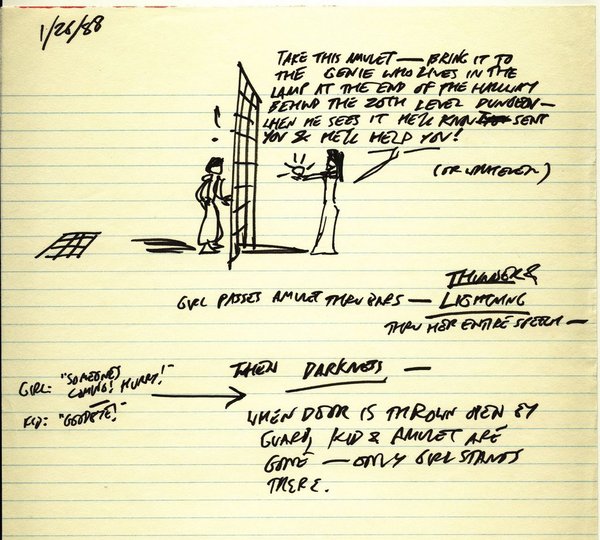 1/26/88
TAKE THIS AMULET — BRING IT TO
THE GENIE WHO LIVES IN THE
LAMP AT THE END OF THE HALLWAY
BEHIND THE 20TH LEVEL DUNGEON —
WHEN HE SEES IT HE'LL KNOW I SENT
YOU & HE'LL HELP YOU!
(OR WHATEVER)
!
GIRL PASSES AMULET THRU BARS —
THUNDER &
LIGHTNING
THRU HER ENTIRE SPEECH —
GIRL: "SOMEONE'S
COMING! HURRY!"
KID: "GOODBYE!"
THEN DARKNESS —
WHEN DOOR IS THROWN OPEN BY
GUARD, KID & AMULET ARE
GONE — ONLY GIRL STANDS
THERE.